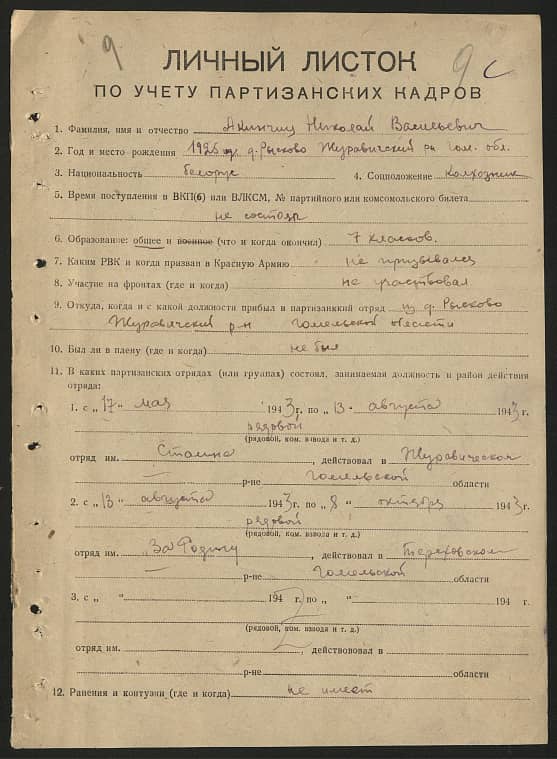 9
9 с
ЛИЧНЫЙ ЛИСТОК
ПО УЧЕТУ ПАРТИЗАНСКИХ КАДРОВ
1. Фамилия, имя и отчество Акинчиц Николай Васильевич
2. Год и место рождения 1926 г. д. Рысково Журавический р-н Гом. обл.
3. Национальность белорус 4. Соцположение Колхозник
5. Время поступления в ВКП(б) или ВЛКСМ, № партийного или комсомольского билета
не состоял
6. Образование: общее и военное (что и когда окончил) 7 классов.
7. Каким РВК и когда призван в Красную Армию не призывался
8. Участие на фронтах (где и когда) не участвовал
9. Откуда, когда и с какой должности прибыл в партизанский отряд из д. Рысково
Журавический р-н Гомельской области
10. Был ли в плену (где и когда) не был
11. В каких партизанских отрядах (или группах) состоял, занимаемая должность и район действия
отряда:
1. с „17" мая 1943 г. по „13" августа 1943 г.
рядовой
(рядовой, ком. взвода и т. д.)
отряд им. Сталина, действовал в Журавическом
р-не Гомельской области
2. с „13" августа 1943 г. по „8" октября 1943 г.
рядовой
(рядовой, ком. взвода и т. д.)
отряд им. „За Родину", действовал в Тереховском
р-не Гомельской области
3, с „ " 194 г. по „ " 194 г.
(рядовой, ком. взвода и т. д.)
отряд им. , действововал в
р-не области
12. Ранения и контузии (где и когда) не имеет